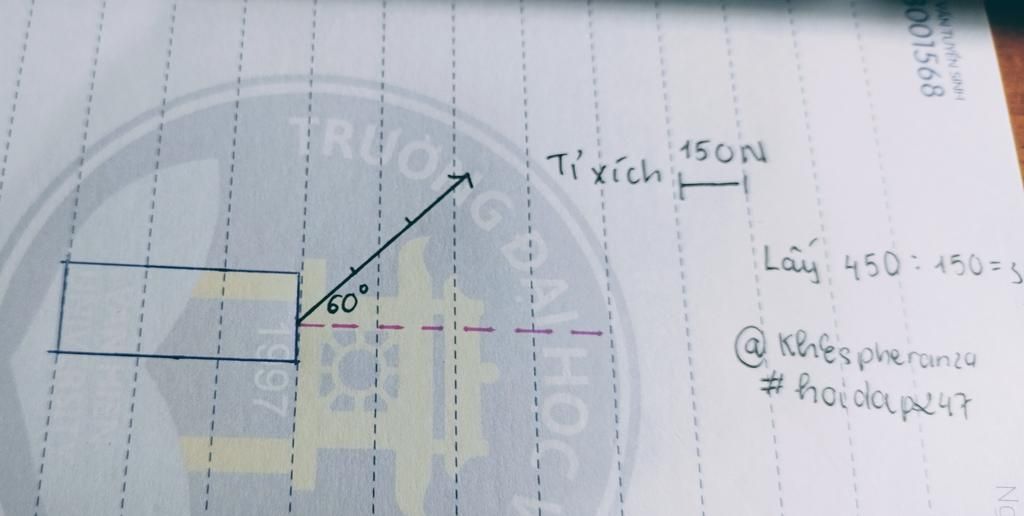 VẤN TUYỂN SINH
001568
TRƯỜNG ĐẠI HỌC
1997
150N
Tỉ xích
60°
Lấy 450 : 150 = 3
@ Khespheranza
# hoidap247